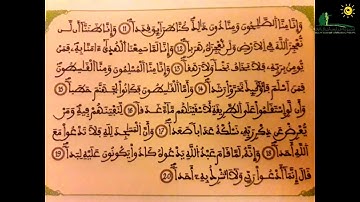 وَإِنَّا مِنَّا اَ۬لصَّٰلِحُونَ وَمِنَّا دُونَ ذَٰلِكَ كُنَّا طَرَآئِقَ قِدَداٗ ⑪ وَإِنَّا ظَنَنَّآ أَن لَّن
نُّعْجِزَ اَ۬للَّهَ فِے اِ۬لَارْضِ وَلَن نُّعْجِزَهُۥ هَرَباٗ ⑫ وَإِنَّا لَمَّا سَمِعْنَا اَ۬لْهُد۪ىٰٓ ءَامَنَّا بِهِۦ فَمَنْ
يُّومِنۢ بِرَبِّهِۦ فَلَا يَخَافُ بَخْساٗ وَلَا رَهَقاٗ ⑬ وَإِنَّا مِنَّا اَ۬لْمُسْلِمُونَ وَمِنَّا اَ۬لْقَٰسِطُونَ
فَمَنَ اَسْلَمَ فَأُوْلَٰٓئِكَ تَحَرَّوْاْ رَشَداٗ ⑭ وَأَمَّا اَ۬لْقَٰسِطُونَ فَكَانُواْ لِجَهَنَّمَ حَطَباٗ ⑮
وَأَن لَّوِ اِ۪سْتَقَٰمُواْ عَلَى اَ۬لطَّرِيقَةِ لَأَسْقَيْنَٰهُم مَّآءً غَدَقاٗ ⑯ لِّنَفْتِنَهُمْ فِيهِ وَمَنْ
يُّعْرِضْ عَن ذِكْرِ رَبِّهِۦ نَسْلُكْهُ عَذَاباٗ صَعَداٗ ⑰ وَأَنَّ اَ۬لْمَسَٰجِدَ لِلهِ فَلَا تَدْعُواْ مَعَ
اَ۬للَّهِ أَحَداٗ ⑱ وَإِنَّهُۥ لَمَّا قَامَ عَبْدُ اُ۬للَّهِ يَدْعُوهُ كَادُواْ يَكُونُونَ عَلَيْهِ لِبَداٗ ⑲
قَالَ إِنَّمَآ أَدْعُواْ رَبِّے وَلَآ أُشْرِكُ بِهِۦٓ أَحَداٗ ⑳